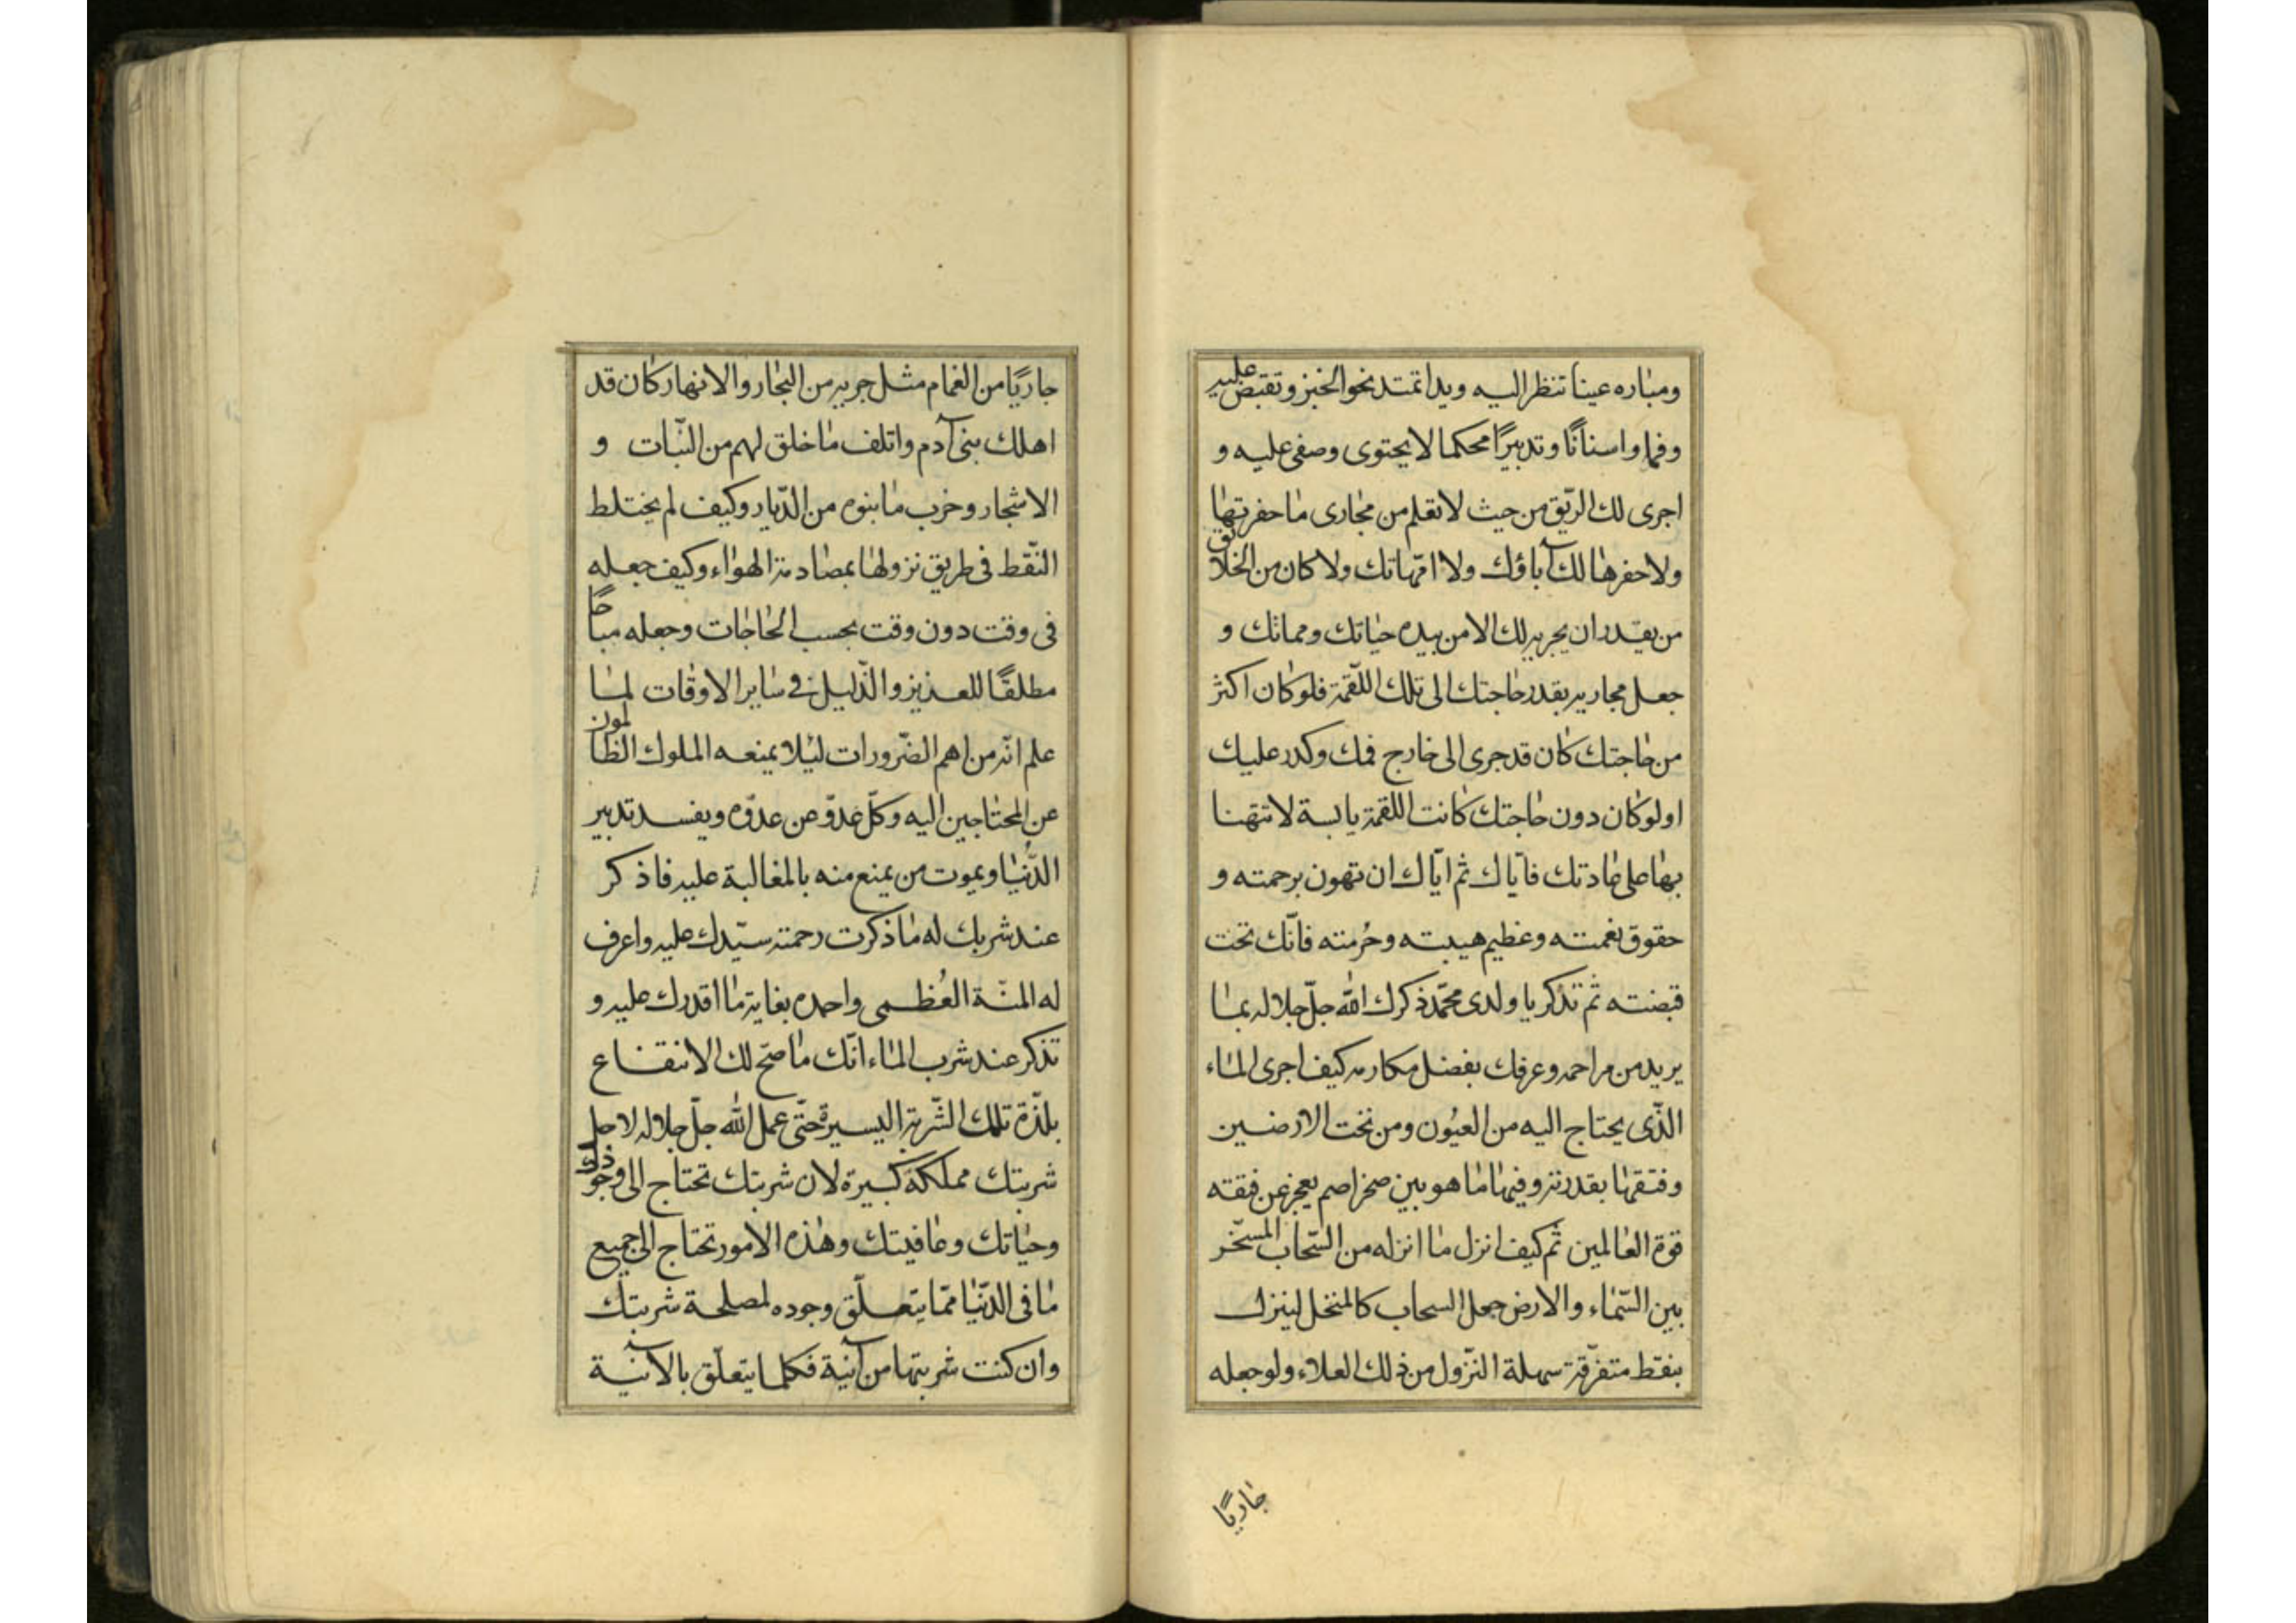 ومبٰاره عيناً تنظر اليه ويدا تمتد نحو الخبز وتقبض عليه
وفما واسنانًا وتدبيرًا محكما لا يحتوى وصفى عليه و
اجرى لك الرّيق من حيث لا تعلم من مجٰارى مٰا حفرتهٰا
ولا حفرهٰا لك آباؤك ولا امّهاتك ولا كان من الخلايق
من يقدر ان يجريه لك الا من بيده حيٰاتك ومماتك و
جعل مجاريه بقدر حٰاجتك الى تلك اللّقمة فلو كٰان اكثر
من حٰاجتك كٰان قد جرى الى خارج فمك وكدر عليك
او لو كٰان دون حٰاجتك كٰانت اللقمة يابسة لا تتهنا
بهٰا على عٰادتك فايّاك ثم ايّاك ان تهون برحمته و
حقوق نعمته وعظيم هيبته وحُرمته فانّك تحت
قبضته ثم تذكر يا ولدى محمّد ذكرك الله جلّ جلاله بمٰا
يريد من مراحمه وعرفك بفضل مكارمه كيف اجرى المٰاء
الذّى يحتاج اليه من العيُون ومن تحت الارضين
وفتقهٰا بقدرته وفيهٰا مٰا هو بين صخر اصم يعجز عن فتقه
قوة العٰالمين ثم كيف انزل مٰا انزله من السّحاب المسخّر
بين السّمٰاء والارض جعل السحاب كالمنخل لينزل
بنقط متفرّقة سهلة النّزول من ذلك العلاء ولو جعله
جٰاريًا
جاريًا من الغمام مثل جريه من البحٰار والانهار كٰان قد
اهلك بنى آدم واتلف مٰا خلق لهم من النّبات و
الاشجار وخرب مٰا بنوه من الدّيار وكيف لم يختلط
النّقط فى طريق نزولهٰا بمصٰادمة الهوٰاء وكيف جعله
فى وقت دون وقت بحسب الحٰاجٰات وجعله مباحًا
مطلقًا للعزيز والذّليل فى سٰاير الاوقٰات لمٰا
علم انّه من اهم الضّرورات لئلا يمنعه الملوك الظٰالمون
عن المحتٰاجين اليه وكلّ عدوّ عن عدوّه ويفسد تدبير
الدُّنيٰا ويموت من يمنع منه بالمغالبة عليه فاذكر
عند شربك له مٰا ذكرت رحمة سيّدك عليه واعرف
له المنّة العُظمى واحمده بغاية مٰا اقدرك عليه و
تذكر عند شرب المٰاء انّك مٰا صحّ لك الانتفاع
بلذّة تلك الشّربة اليسيرة حتّى عمل الله جلّ جلاله لاجل
شربتك مملكة كبيرة لان شربتك تحتاج الى وجودك
وحيٰاتك وعٰافيتك وهٰذه الامور تحتاج الى جميع
مٰا فى الدّنيٰا ممّا يتعلّق وجوده لمصلحة شربتك
وان كنت شربتها من آنية فكلما يتعلّق بالآنية